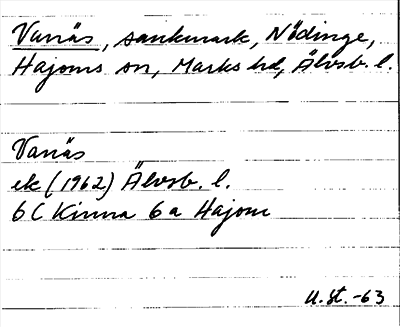 Vanäs, sankmark, Nödinge,
Hajoms sn, Marks hd, Älvsb. l.
Vanäs
ek (1962) Älvsb. l.
6 C Kinna 6 a Hajom
U. St. -63